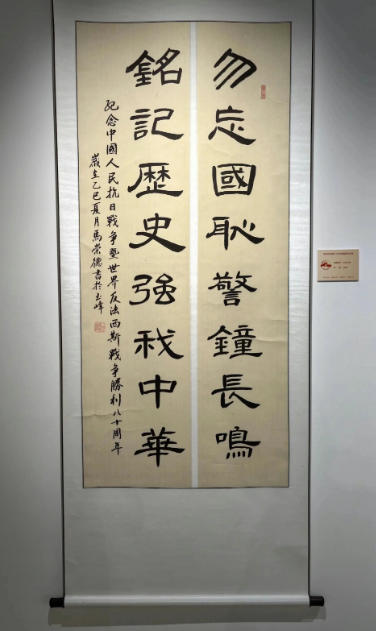 勿忘國恥警鐘長鳴
銘記歷史強我中華
紀念中國人民抗日戰爭暨世界反法西斯戰爭勝利八十周年
歲在乙巳夏月馬榮德書於玉峰